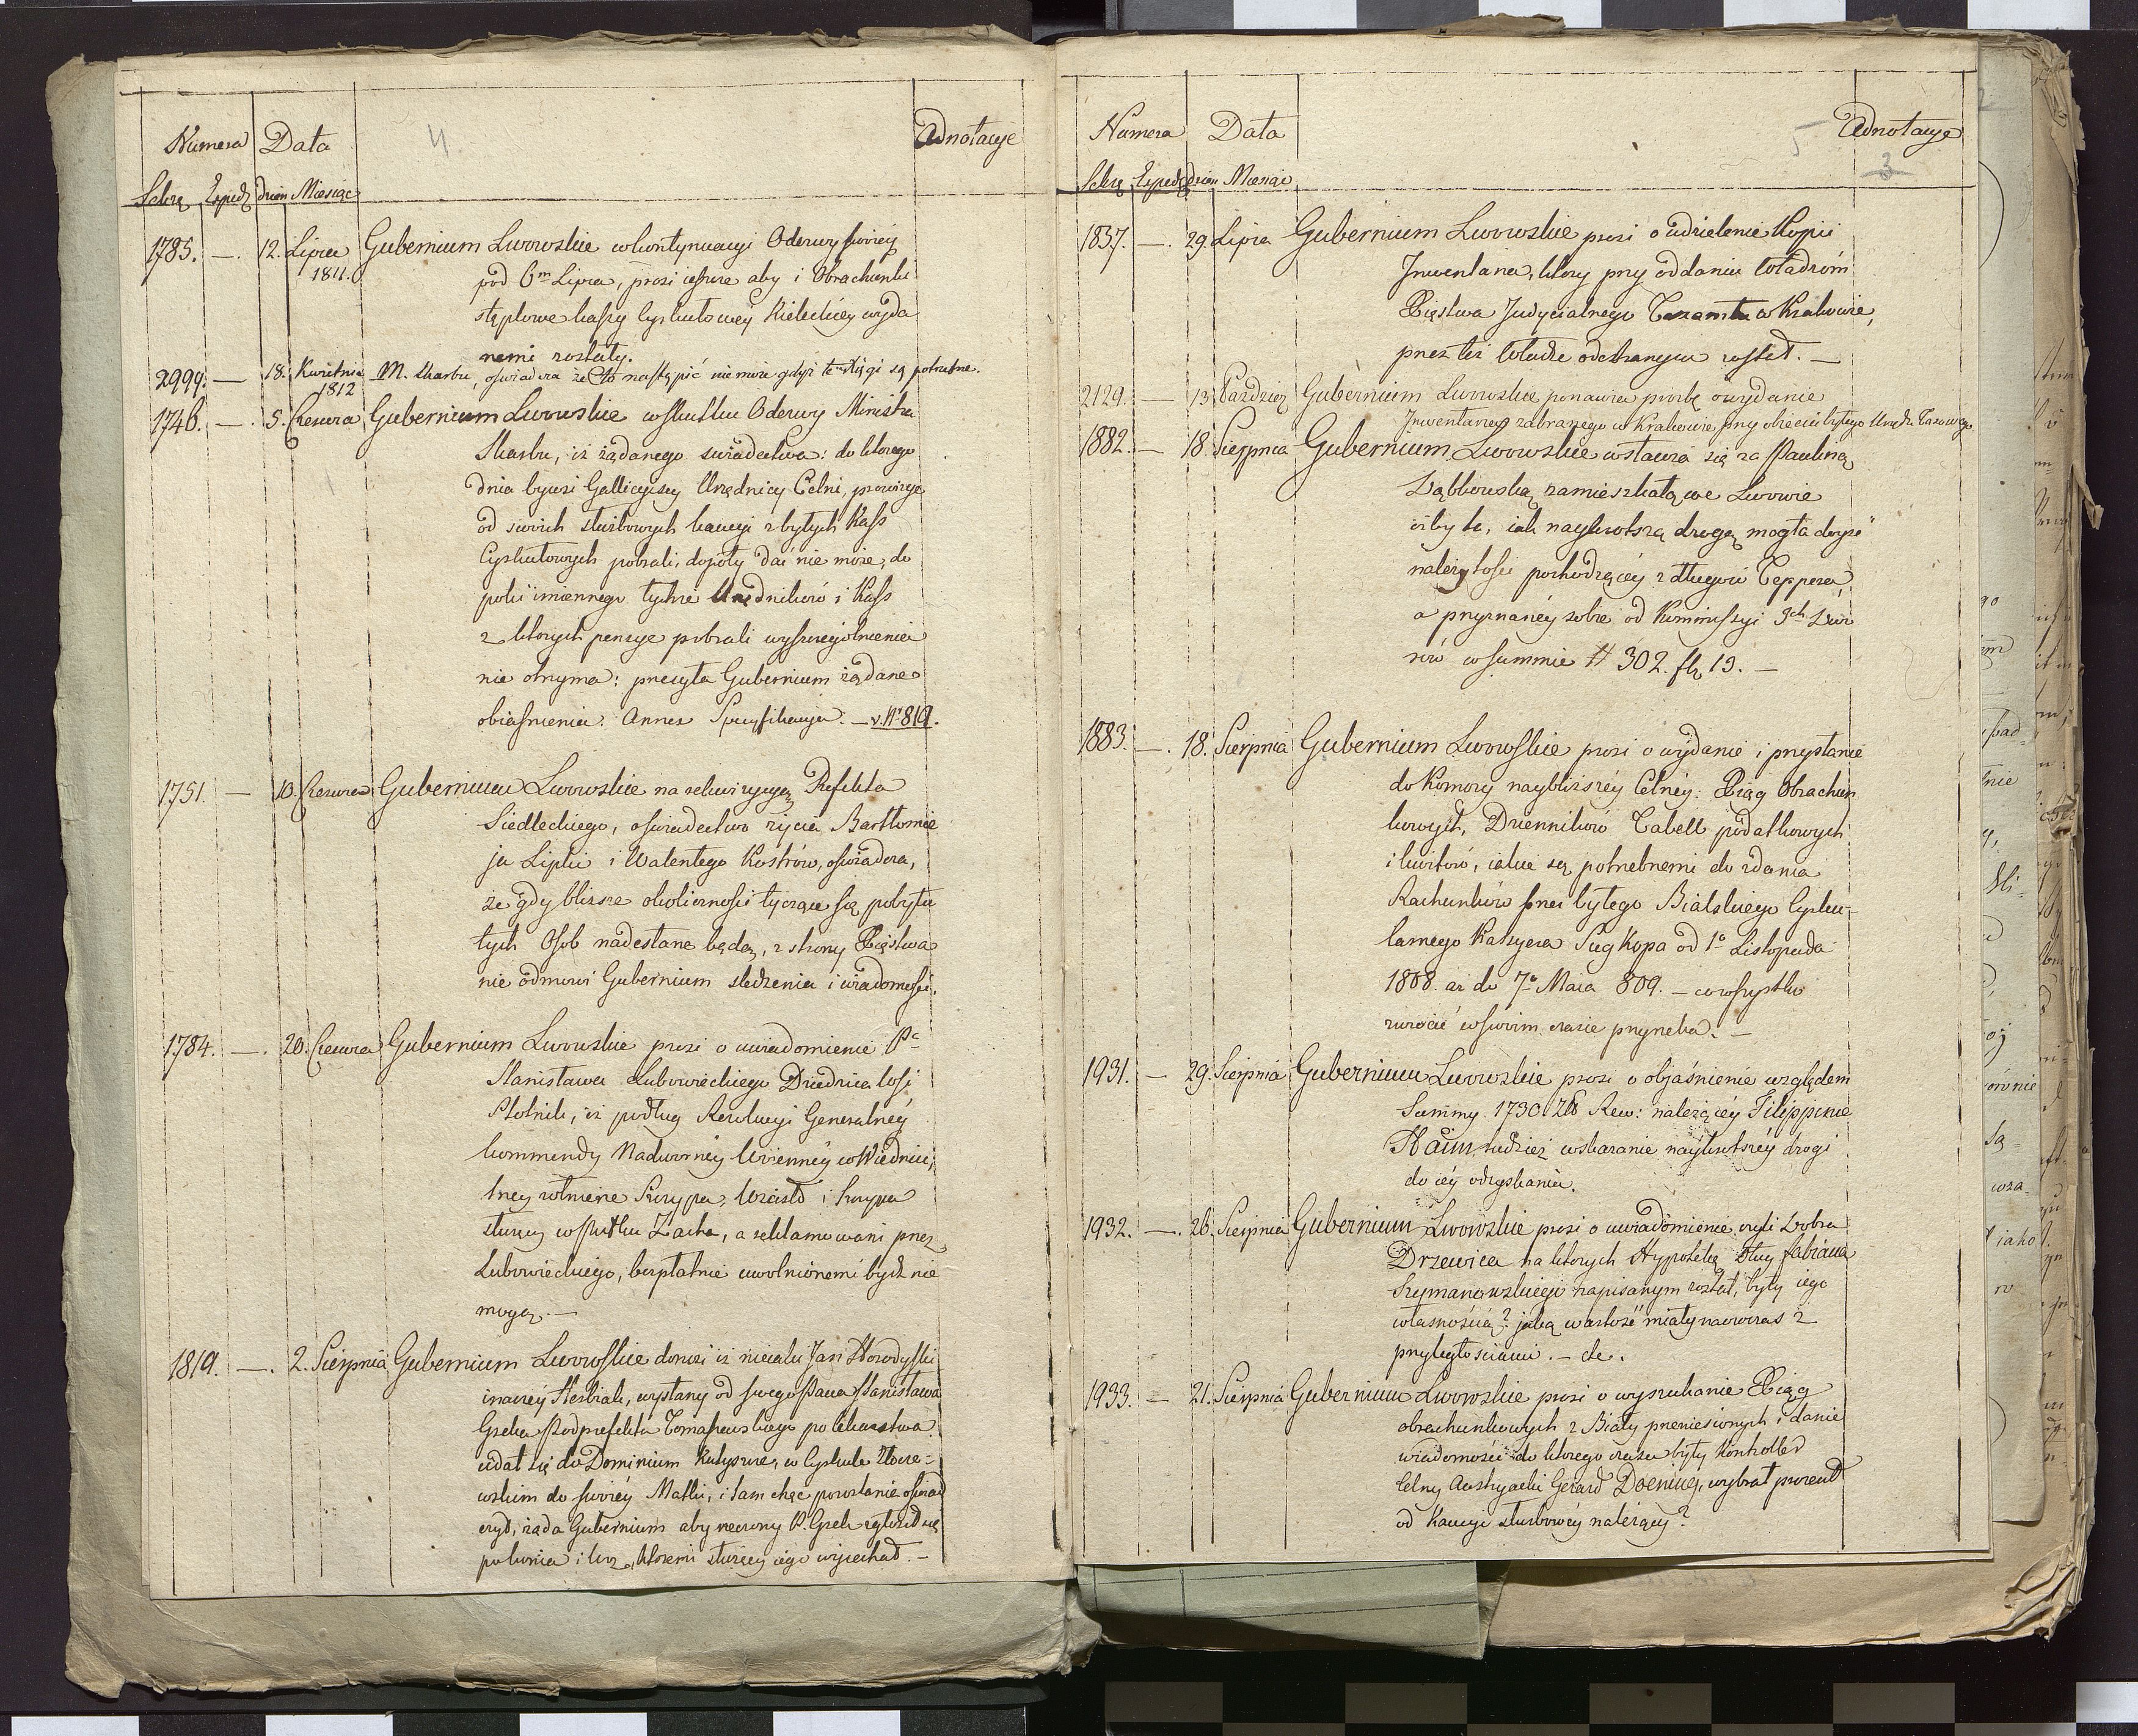 Numera Data 4 Adnotacye
Sekrę Exped dzien Miesiąc
1785. — . 12. Lipca Gubernium Lwowskie w kontynuacyi Odezwy swoiey
1811. pod 6m Lipca, prosi ieszcze aby i Obrachunki
stęplowe kassy Cyrkułowey Kieleckiey wyda
nemi zostały.
2999. — 18. Kwietnia M. Skarbu, oświadcza że to nastąpić nie może gdyż te Xięgi są potrzebne.
1812
1746. — . 5. Czerwca Gubernium Lwowskie w skutku Odezwy Ministra
Skarbu, iż żądanego świadectwa: do którego
dnia bywsi Gallicyiscy Urzędnicy Celni, prowizye
od swoich służbowych kaucyi z byłych Kass
Cyrkułowych pobrali, dopóty dać nie może, do
poki imiennego tychże Urzędników i Kass
z których pensye pobrali wyszczególnienia
nie otrzyma: przesyła Gubernium żądane
obiaśnienia. Annex Specyfikacya. — v. Nr 819.
1751. — 10. Czerwca Gubernium Lwowskie na rekwizycyą Prefekta
Siedleckiego, o świadectwo życia Bartłomie
ja Lipki i Walentego Kostrów, oświadcza,
że gdy bliższe okoliczności tyczące się pobytu
tych Osob nadesłane będą, z strony Xięstwa
nie odmowi Gubernium śledzenia i wiadomości.
1784. — . 20. Czerwca Gubernium Lwowskie prosi o uwiadomienie Pa
Stanisława Lubowieckiego Dziedzica wsi
Stolnik, iż podług Rezolucyi Generalney
kommendy Nadworney Woienney w Wiedniu,
trzey żołnierze Szczypa, Wzciśło i Szczypa
służący w Pułku Zacha, a reklamowani przez
Lubowieckiego, bezpłatnie uwolnionemi bydź nie
mogą. —
1819. — . 2. Sierpnia Gubernium Lwowskie donosi iż nieiaki Jan Horodyski
inaczey Herbiak, wysłany od swego Pana Stanisława
Greka Podprefekta Tomaszewskiego po lekarstwa
udał się do Dominium Kutyszcze, w Cyrkule Złocze-
wskim do swoiey Matki, i tam chęc pozostania oświad
czył, żąda Gubernium aby rzeczony P. Grek zgłosił się
po konia i wóz, któremi służący iego wyiechał. —
Numera Data 5 Adnotacye
3
Sekrę Exped dzien Miesiąc
1837. — . 29. Lipca Gubernium Lwowskie prosi o udzielenie Kopii
Inwentarza, ktory przy oddaniu Władzom
Xięstwa Judycialnego Taxamtu w Krakowie,
przez też Władze odebranym został. —
2129. — 13 Paździer Gubernium Lwowskie ponawia prosbę o wydanie
Inwentarza zabranego w Krakowie przy obięciu byłego Urzędu Taxowego
1882. — 18. Sierpnia Gubernium Lwowskie wstawia się za Pauliną
Dąbkowską zamieszkałą we Lwowie
iżby ta, iak naykrotszą drogą mogła doyść
należytości pochodzącey z długów Teppera,
a przyznaney sobie od Kommissyi 3ch Dwo
rów w summie # 302. flr 19. —
1883. — . 18. Sierpnia Gubernium Lwowskie prosi o wydanie i przysłanie
do Komory naybliższey Celney: Xiąg Obrachun
kowych, Dzienników Tabell podatkowych
i kwitow, iakie są potrzebnemi do zdania
Rachunków przez byłego Bialskiego Cyrku-
larnego Kassyera Siegkopa od 1o Listopada
1808. aż do 7o Maia 809. — co wszystko
zwrócić w swoim czasie przyrzeka. —
1931. — 29. Sierpnia Gubernium Lwowskie prosi o objaśnienie względem
Summy 1730 Zł Rew: należącey Filippinie
Haim, tudzież wskazanie naykrotszey drogi
do iey odzyskania.
1932. — . 26. Sierpnia Gubernium Lwowskie prosi o uwiadomienie czyli Dobra
Drzewica na ktorych Hypotekę dług Fabiana
Szymanowskiego zapisanym został, były iego
własnością? jaką wartość miały naowczas z
przyległościami. — etc.
1933. — 21. Sierpnia Gubernium Lwowskie prosi o wyszukanie Xiąg
obrachunkowych z Biały przeniesionych i danie
wiadomości do ktorego czasu były Kontroller
Celny Austryacki Gerard Doenius, wybrał procent
od Kaucyi służbowey należący?